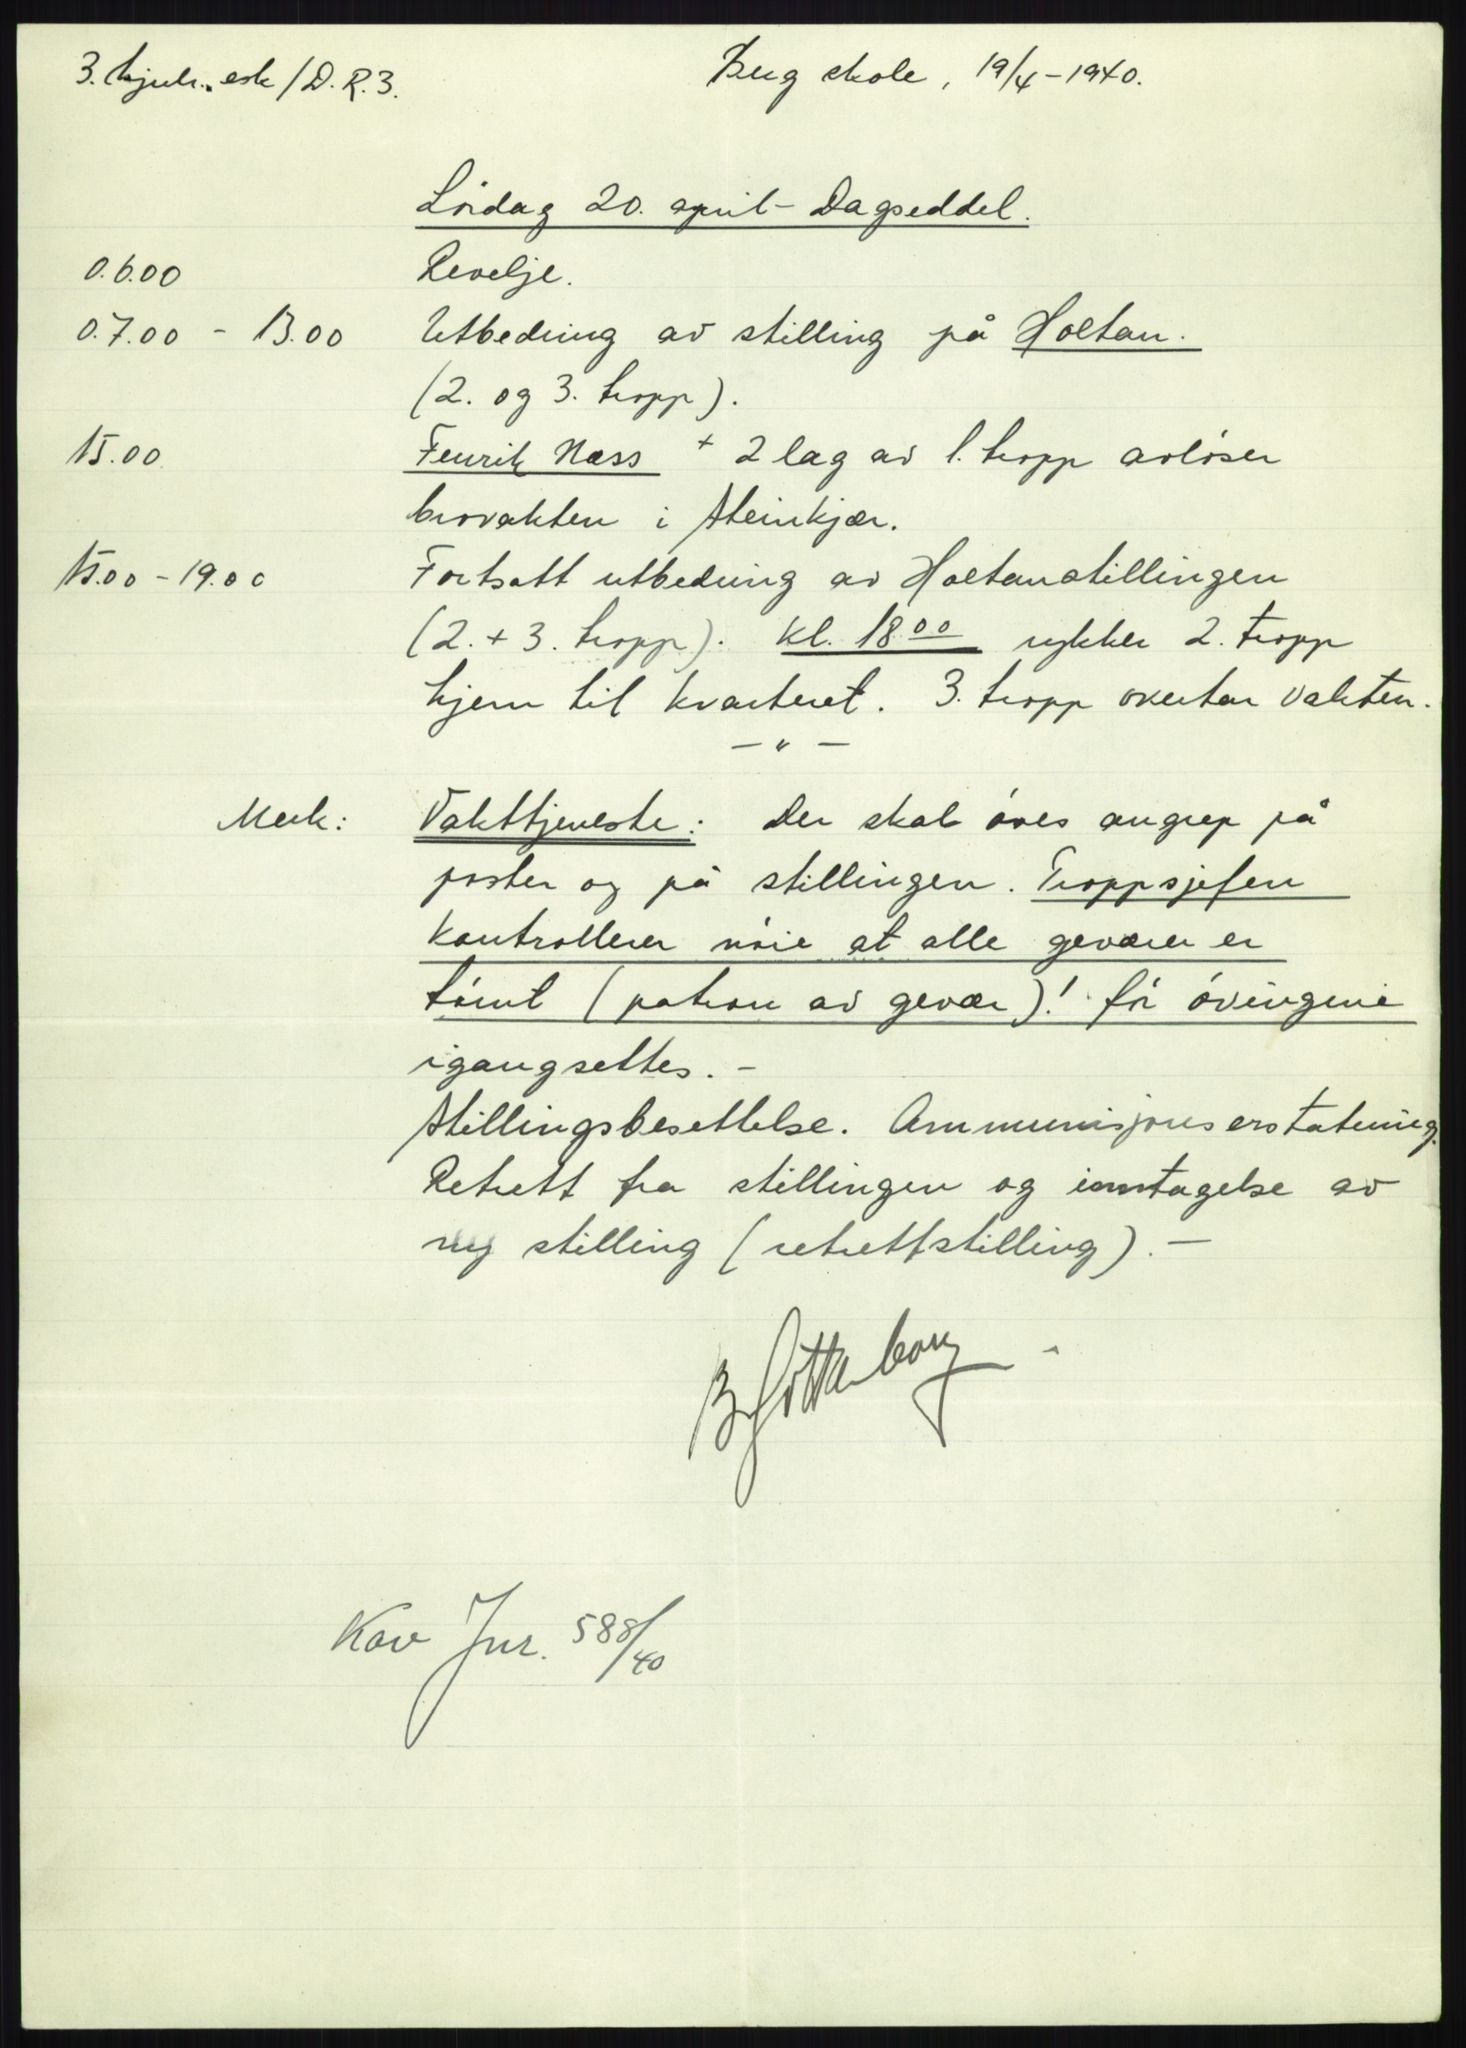 3. hjulr. esk / D.R.3.
Berg skole, 19/4-1940.
Lördag 20. april - Dagseddel.
0.6.00 Revelje.
0.7.00 - 13.00 Utbedring av stilling på Holtan.
(2. og 3. tropp).
15.00 Fenrik Næss + 2 lag av 1. tropp avlöser
brovakten i Steinkjær.
15.00 - 19.00 Fortsatt utbedring av Holtanstillingen
(2. + 3. tropp). Kl. 18.00 rykker 2. tropp
hjem til kvarteret. 3. tropp overtar vakten.
— " —
Merk: Vakttjeneste: Der skal öves angrep på
poster og på stillingen. Troppsjefen
kontrollerer nöie at alle geværer er
tömt (patron av gevær)! för övingene
igangsettes. —
Stillingsbesettelse. Ammunisjonserstatning.
Retrett fra stillingen og inntagelse av
ny stilling (retrettstilling). —
Kav Jnr. 588/40